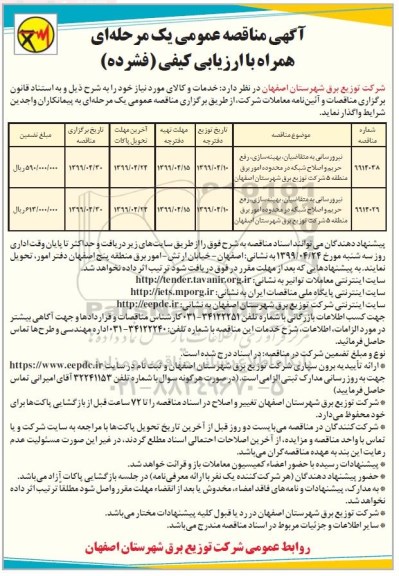 آگهی مناقصه عمومی یک مرحله‌ای
همراه با ارزیابی کیفی (فشرده)
شرکت توزیع برق شهرستان اصفهان در نظر دارد: خدمات و کالای مورد نیاز خود را به شرح ذیل و به استناد قانون
برگزاری مناقصات و آئین‌نامه معاملات شرکت، از طریق برگزاری مناقصه عمومی یک مرحله‌ای به پیمانکاران واجدین
شرایط واگذار نماید.
شماره مناقصه | موضوع مناقصه | تاریخ توزیع دفترچه | مهلت تهیه دفترچه | آخرین مهلت تحویل پاکات | تاریخ برگزاری مناقصه | مبلغ تضمین
۹۹۱۴۰۳۸ | نیرورسانی به متقاضیان، بهینه‌سازی، رفع حریم و اصلاح شبکه در محدوده امور برق منطقه ۵ شرکت توزیع برق شهرستان اصفهان | ۱۳۹۹/۰۴/۱۰ | ۱۳۹۹/۰۴/۱۵ | ۱۳۹۹/۰۴/۲۴ | ۱۳۹۹/۰۴/۳۰ | ۵۹۰/۰۰۰/۰۰۰ ریال
نیرورسانی به متقاضیان، بهینه‌سازی، رفع حریم و اصلاح شبکه در محدوده امور برق منطقه ۵ شرکت توزیع برق شهرستان اصفهان | ۱۳۹۹/۰۴/۱۰ | ۱۳۹۹/۰۴/۱۵ | ۱۳۹۹/۰۴/۲۴ | ۱۳۹۹/۰۴/۳۰ | ۶۱۳/۰۰۰/۰۰۰ ریال
پیشنهاد دهندگان می‌توانند اسناد مناقصه به شرح فوق را از طریق سایت‌های زیر دریافت و حداکثر تا پایان وقت اداری
روز سه شنبه مورخ ۱۳۹۹/۰۴/۲۴ به نشانی: اصفهان - خیابان ارتش - امور برق منطقه پنج اصفهان دفتر امور، تحویل
نمایند. به پیشنهادهایی که بعد از مهلت مقرر در فوق دریافت شود ترتیب اثر داده نخواهد شد.
سایت اینترنتی معاملات توانیر به نشانی: http://tender.tavanir.org.ir
سایت اینترنتی پایگاه ملی مناقصات ایران به نشانی: http://iets.mporg.ir
سایت اینترنتی شرکت توزیع برق شهرستان اصفهان به نشانی: http://eepdc.ir
جهت کسب اطلاعات بازرگانی با شماره تلفن ۳۴۱۲۲۲۵۱-۰۳۱ کارشناس مناقصات و قراردادها و جهت آگاهی بیشتر
در مورد الزامات، اطلاعات، شرح خدمات این مناقصه با شماره تلفن: ۳۴۱۲۲۲۴۰-۰۳۱ اداره مهندسی و طرح‌ها تماس
حاصل فرمائید.
نوع و مبلغ تضمین شرکت در مناقصه: در اسناد درج شده است.
* ارائه تأییدیه برون سپاری شرکت توزیع برق شهرستان اصفهان و ثبت نام در سایت https://www.eepdc.ir
جهت به روز رسانی مدارک ثبتی الزامی است. (در صورت هرگونه سوال با شماره تلفن ۳۲۲۴۱۱۵۳ آقای امیرانی تماس
حاصل فرمایید)
* شرکت توزیع برق شهرستان اصفهان تغییر و اصلاح در اسناد مناقصه را تا ۷۲ ساعت قبل از بازگشایی پاکت‌ها برای
خود محفوظ می‌دارد.
* شرکت‌کنندگان در مناقصه می‌بایست دو روز قبل از آخرین تاریخ تحویل پاکت‌ها با مراجعه به سایت شرکت و یا
تماس با واحد مناقصه و مزایده، از آخرین اصلاحات احتمالی اسناد مطلع گردند، در غیر این صورت مسئولیت عدم
رعایت این بند به عهده مناقصه‌گران می‌باشد.
* پیشنهادات رسیده با حضور اعضاء کمیسیون معاملات باز و قرائت خواهد شد.
* حضور پیشنهاد دهندگان (هر شرکت‌کننده یک نفر با ارائه معرفی‌نامه) در جلسه بازگشایی پاکات آزاد می‌باشد.
* به مدارک، پیشنهادات و نامه‌های فاقد امضاء، مخدوش یا بعد از انقضاء مهلت مقرر واصل شود مطلقا ترتیب اثر داده
نخواهد شد.
* شرکت توزیع برق شهرستان اصفهان در رد یا قبول کلیه پیشنهادات مختار می‌باشد.
* سایر اطلاعات و جزئیات مربوط در اسناد مناقصه مندرج می‌باشد.
روابط عمومی شرکت توزیع برق شهرستان اصفهان